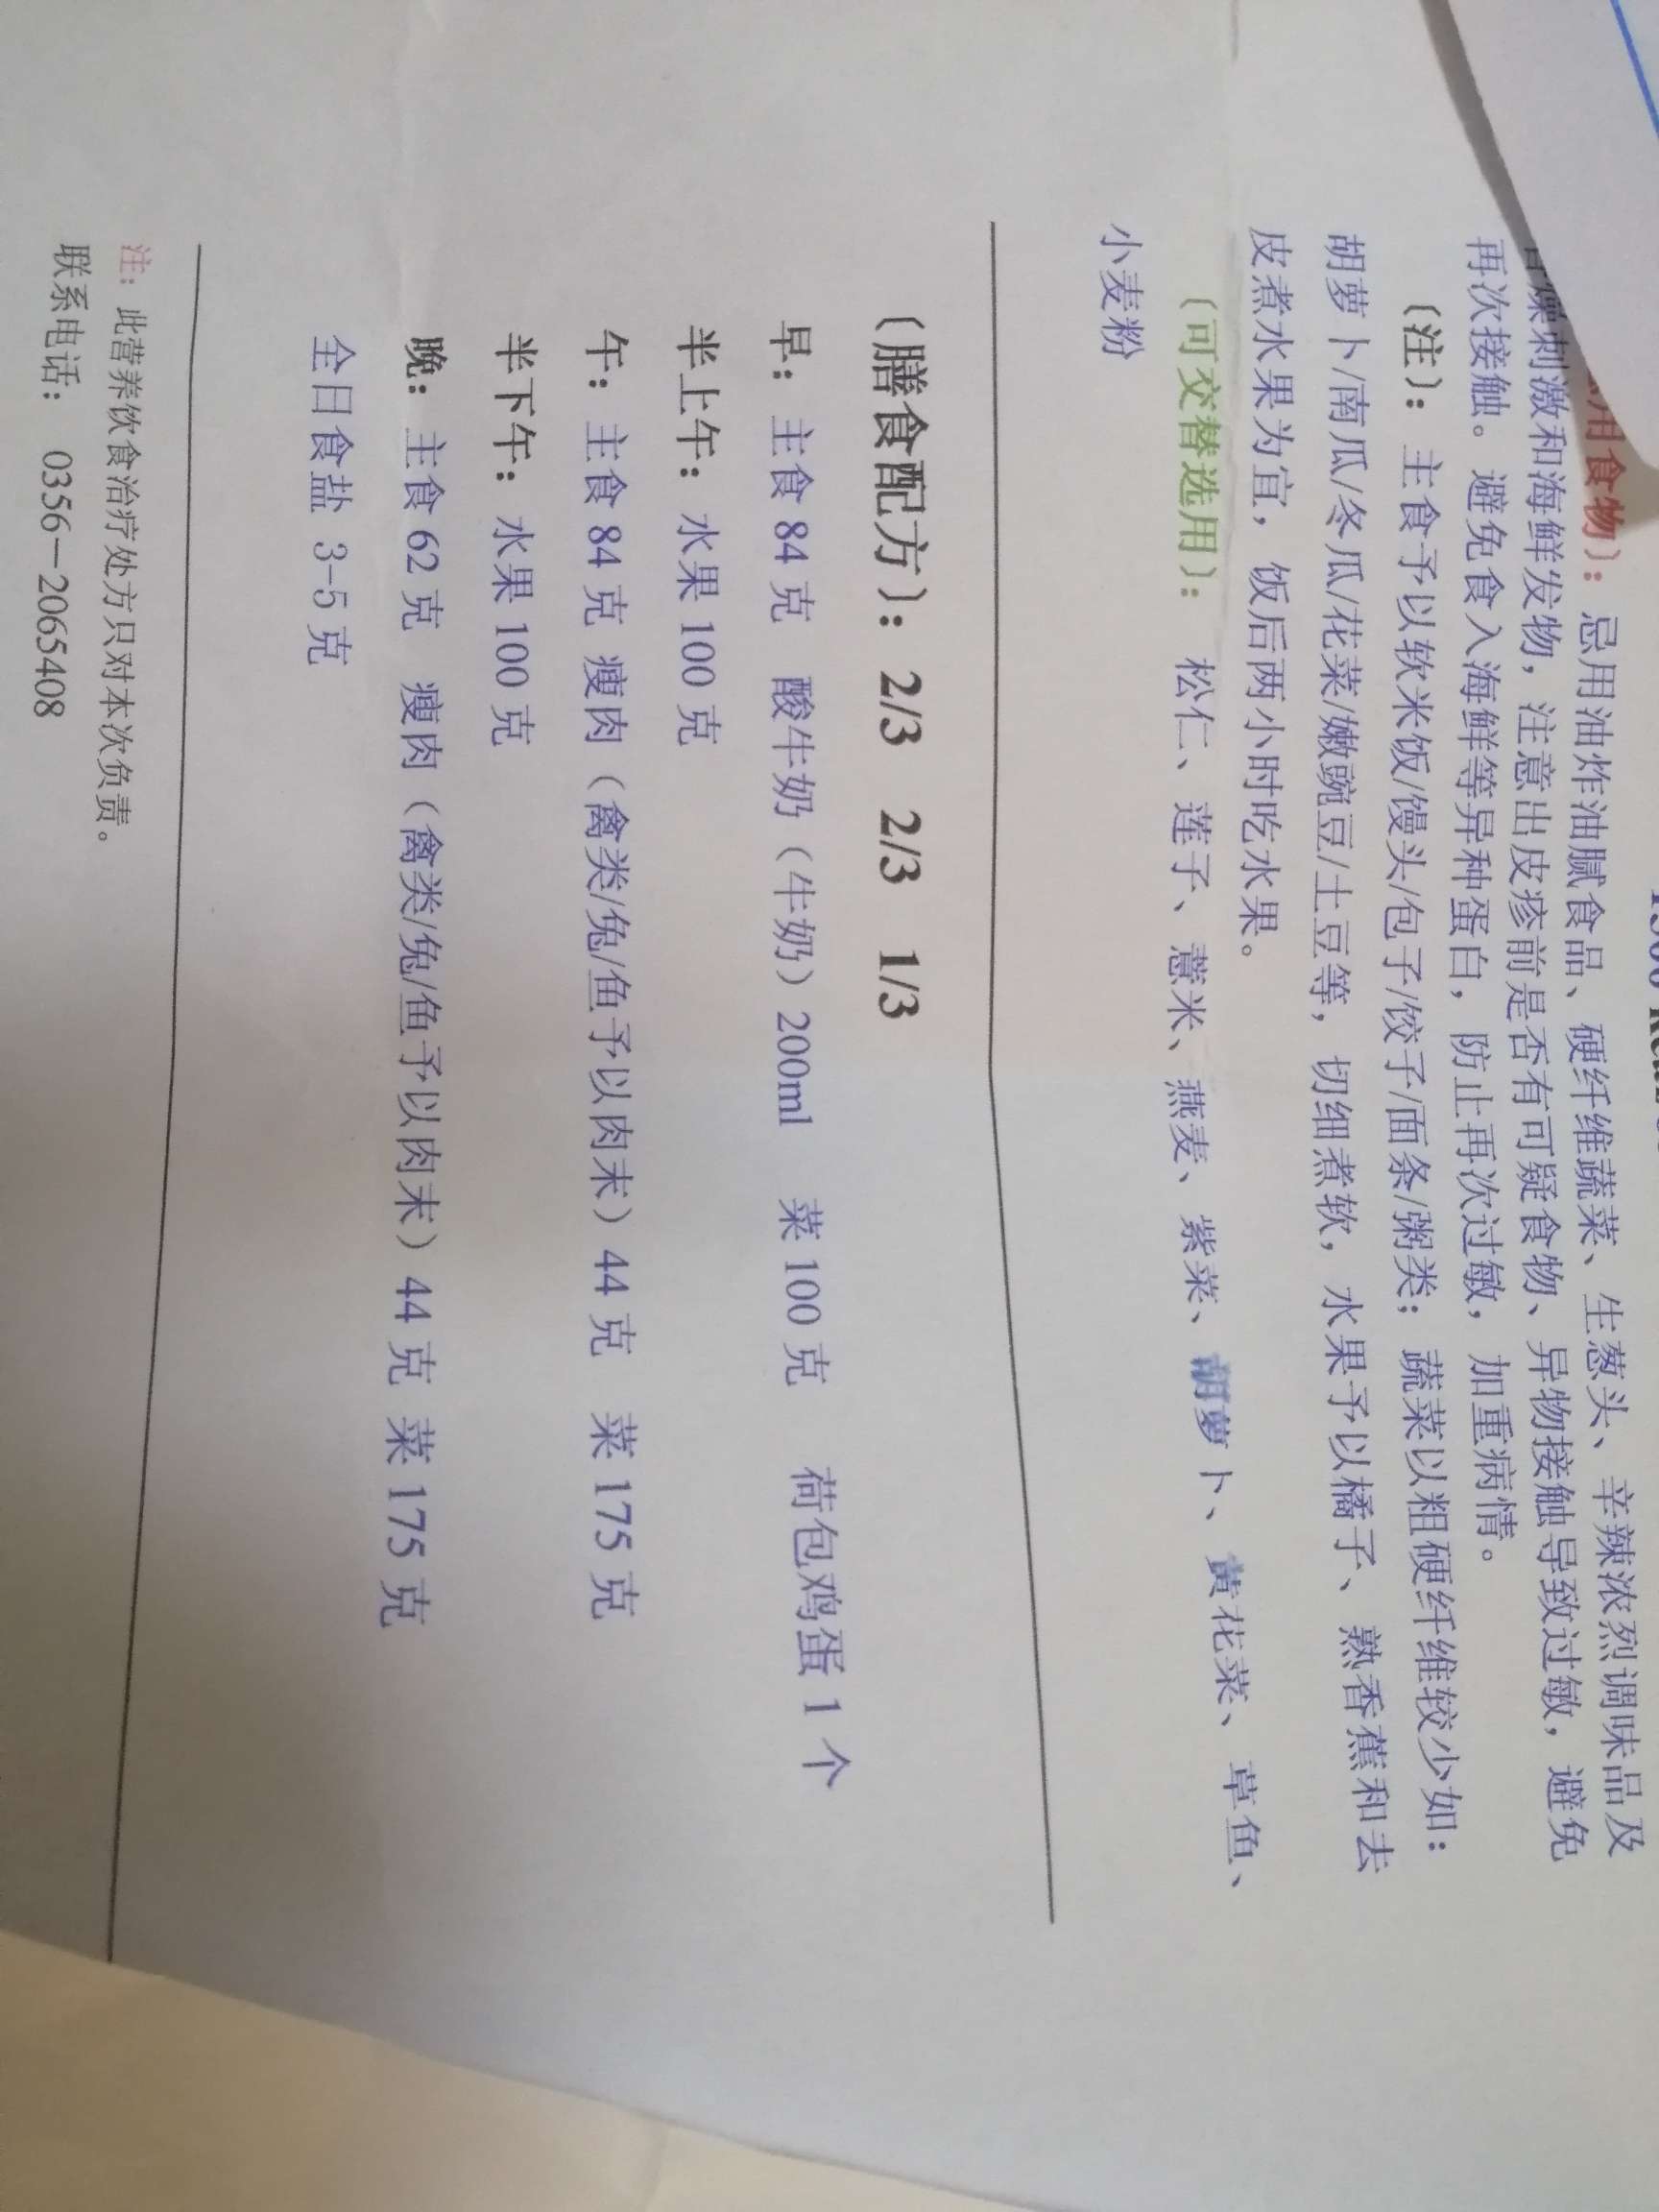 用食物〕：忌用油炸油腻食品、硬纤维蔬菜、生葱头、辛辣浓烈调味品及
燥刺激和海鲜发物，注意出皮疹前是否有可疑食物、异物接触导致过敏，避免
再次接触。避免食入海鲜等异种蛋白，防止再次过敏，加重病情。
〔注〕：主食予以软米饭/馒头/包子/饺子/面条/粥类；蔬菜以粗硬纤维较少如：
胡萝卜/南瓜/冬瓜/花菜/嫩豌豆/土豆等，切细煮软，水果予以橘子、熟香蕉和去
皮煮水果为宜，饭后两小时吃水果。
〔可交替选用〕：松仁、莲子、薏米、燕麦、紫菜、胡萝卜、黄花菜、草鱼、
小麦粉
〔膳食配方〕：2/3 2/3 1/3
早：主食 84 克 酸牛奶（牛奶）200ml 菜 100 克 荷包鸡蛋 1 个
半上午：水果 100 克
午：主食 84 克 瘦肉（禽类/兔/鱼予以肉末）44 克 菜 175 克
半下午：水果 100 克
晚：主食 62 克 瘦肉（禽类/兔/鱼予以肉末）44 克 菜 175 克
全日食盐 3-5 克
注：此营养饮食治疗处方只对本次负责。
联系电话： 0356－2065408